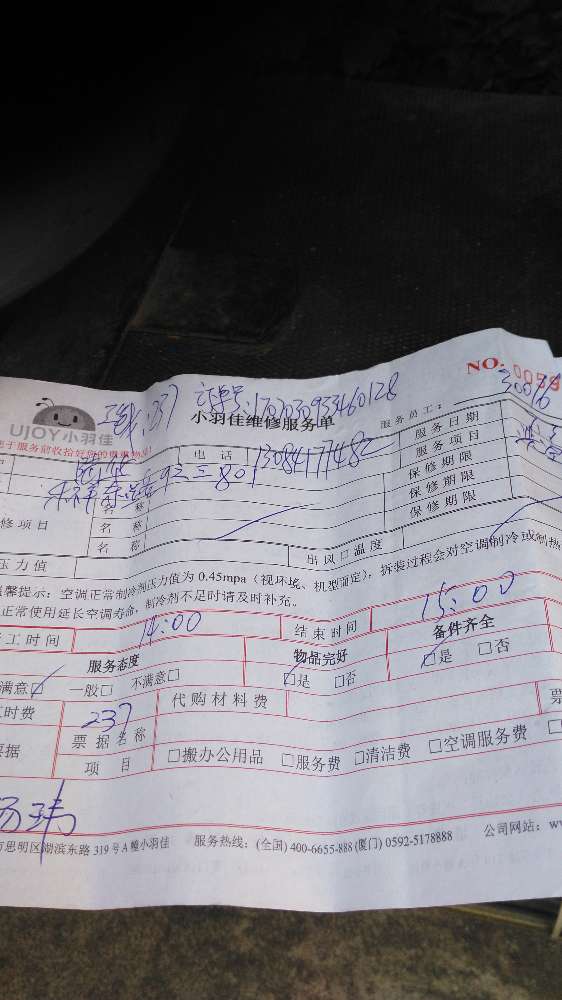 NO.
订单号:170703093460128
UJOY小羽佳
小羽佳维修服务单
服务员工:
电 话
13084177482
服务日期
服务项目
保修期限
名 称
保修期限
修项目
名 称
保修期限
名 称
压力值
出风口温度
馨提示:空调正常制冷剂压力值为 0.45mpa(视环境、机型而定),拆装过程会对空调制冷或制热
正常使用延长空调寿命,制冷剂不足时请及时补充。
工时间
14:00
结束时间
15:00
服务态度
物品完好
备件齐全
满意□
一般□
不满意□
□是
□否
□是
□否
时费
237
代购材料费
票
票据
票据名称
项 目
□搬办公用品
□服务费
□清洁费
□空调服务费
杨玮
思明区湖滨东路 319 号 A 幢小羽佳
服务热线:(全国) 400-6655-888 (厦门) 0592-5178888
公司网站: